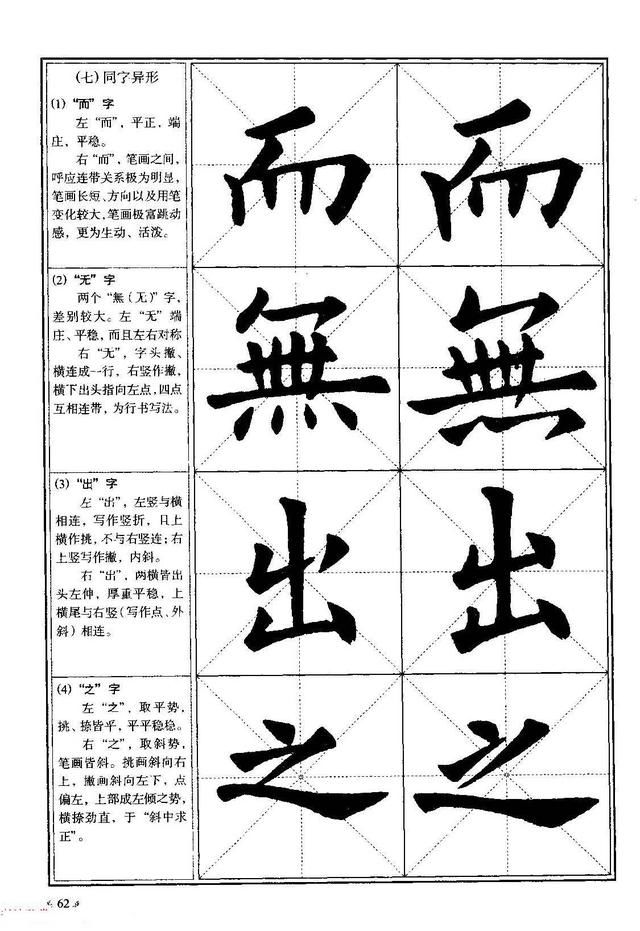 (七)同字异形
(1)“而”字
左“而”，平正，端
庄，平稳。
右“而”，笔画之间，
呼应连带关系极为明显，
笔画长短、方向以及用笔
变化较大，笔画极富跳动
感，更为生动、活泼。
而 而
(2)“无”字
两个“無(无)”字，
差别较大。左“无”端
庄、平稳，而且左右对称
右“无”，字头撇、
横连成一行，右竖作撇，
横下出头指向左点，四点
互相连带，为行书写法。
無 無
(3)“出”字
左“出”，左竖与横
相连，写作竖折，且上
横作挑，不与右竖连；右
上竖写作撇，内斜。
右“出”，两横皆出
头左伸，厚重平稳，上
横尾与右竖(写作点、外
斜)相连。
出 出
(4)“之”字
左“之”，取平势，
挑、捺皆平，平平稳稳。
右“之”，取斜势，
笔画皆斜。挑画斜向右
上，撇画斜向左下，点
偏左，上部成左倾之势，
横捺劲直，于“斜中求
正”。
之 之
62